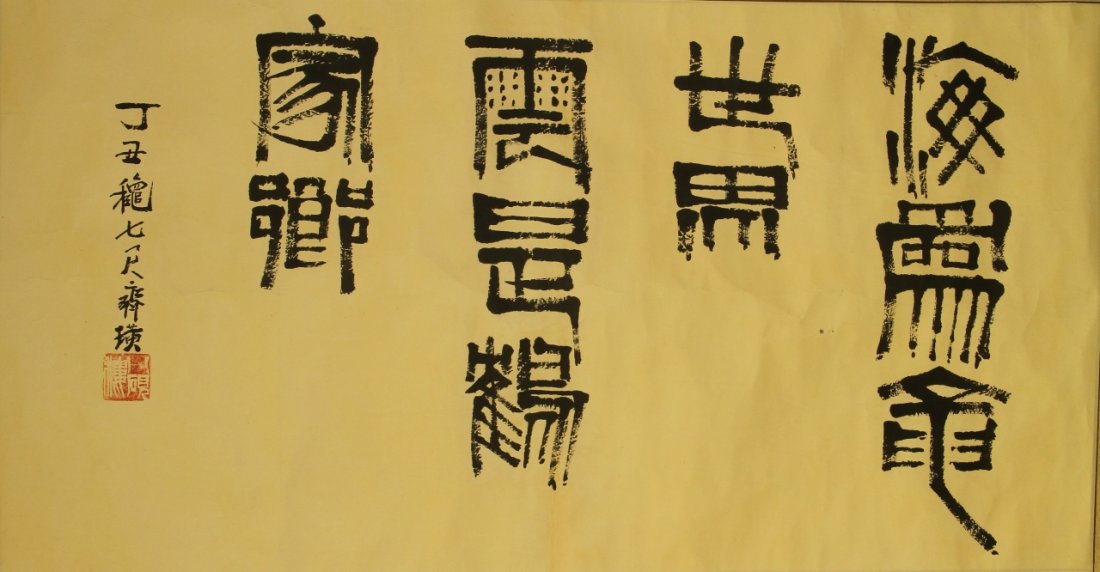 海為龜
世界
雲是鶴
家鄉
丁丑穐七 齊璜